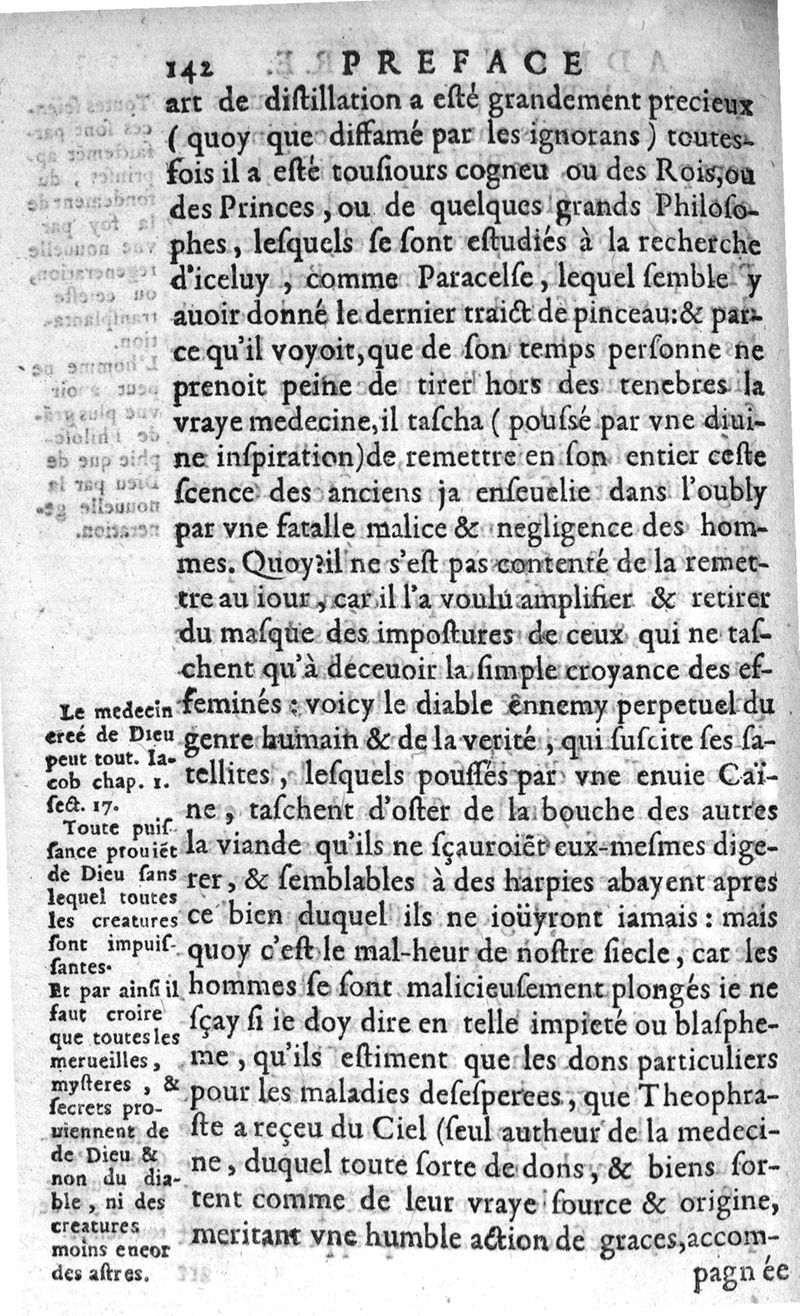 142 PREFACE
art de diſtillation a eſté grandement precieux
( quoy que diffamé par les ignorans ) toutes-
fois il a eſté touſiours cogneu ou des Rois, ou
des Princes , ou de quelques grands Philoſo-
phes , leſquels ſe ſont eſtudiés à la recherche
d'iceluy , comme Paracelſe , lequel ſemble y
auoir donné le dernier traict de pinceau: & par-
ce qu'il voyoit, que de ſon temps perſonne ne
prenoit peine de tirer hors des tenebres la
vraye medecine, il taſcha ( pouſſé par vne diui-
ne inſpiration) de remettre en ſon entier ceſte
ſcence des anciens ja enſeuelie dans l'oubly
par vne fatalle malice & negligence des hom-
mes. Quoy? il ne s'eſt pas contenté de la remet-
tre au iour , car il l'a voulu amplifier & retirer
du maſque des impoſtures de ceux qui ne taſ-
chent qu'à deceuoir la ſimple croyance des ef-
feminés : voicy le diable ennemy perpetuel du
genre humain & de la verité , qui ſuſcite ſes ſa-
tellites , leſquels pouſſés par vne enuie Caï-
ne , taſchent d'oſter de la bouche des autres
la viande qu'ils ne ſçauroiẽt eux-meſmes dige-
rer, & ſemblables à des harpies abayent apres
ce bien duquel ils ne ioüyront iamais : mais
quoy c'eſt le mal-heur de noſtre ſiecle, car les
hommes ſe ſont malicieuſement plongés ie ne
ſçay ſi ie doy dire en telle impieté ou blaſphe-
me , qu'ils eſtiment que les dons particuliers
pour les maladies deſeſperees , que Theophra-
ſte a reçeu du Ciel (ſeul autheur de la medeci-
ne , duquel toute ſorte de dons , & biens ſor-
tent comme de leur vraye ſource & origine,
meritant vne humble action de graces, accom-
pagnée
Le medecin
creé de Dieu
peut tout. Ia-
cob chap. 1.
ſect. 17.
Toute puiſ-
ſance prouiẽt
de Dieu ſans
lequel toutes
les creatures
ſont impuiſ-
ſantes.
Et par ainſi il
faut croire
que toutes les
merueilles ,
myſteres , &
ſecrets pro-
uiennent de
de Dieu &
non du dia-
ble , ni des
creatures
moins encor
des aſtres.